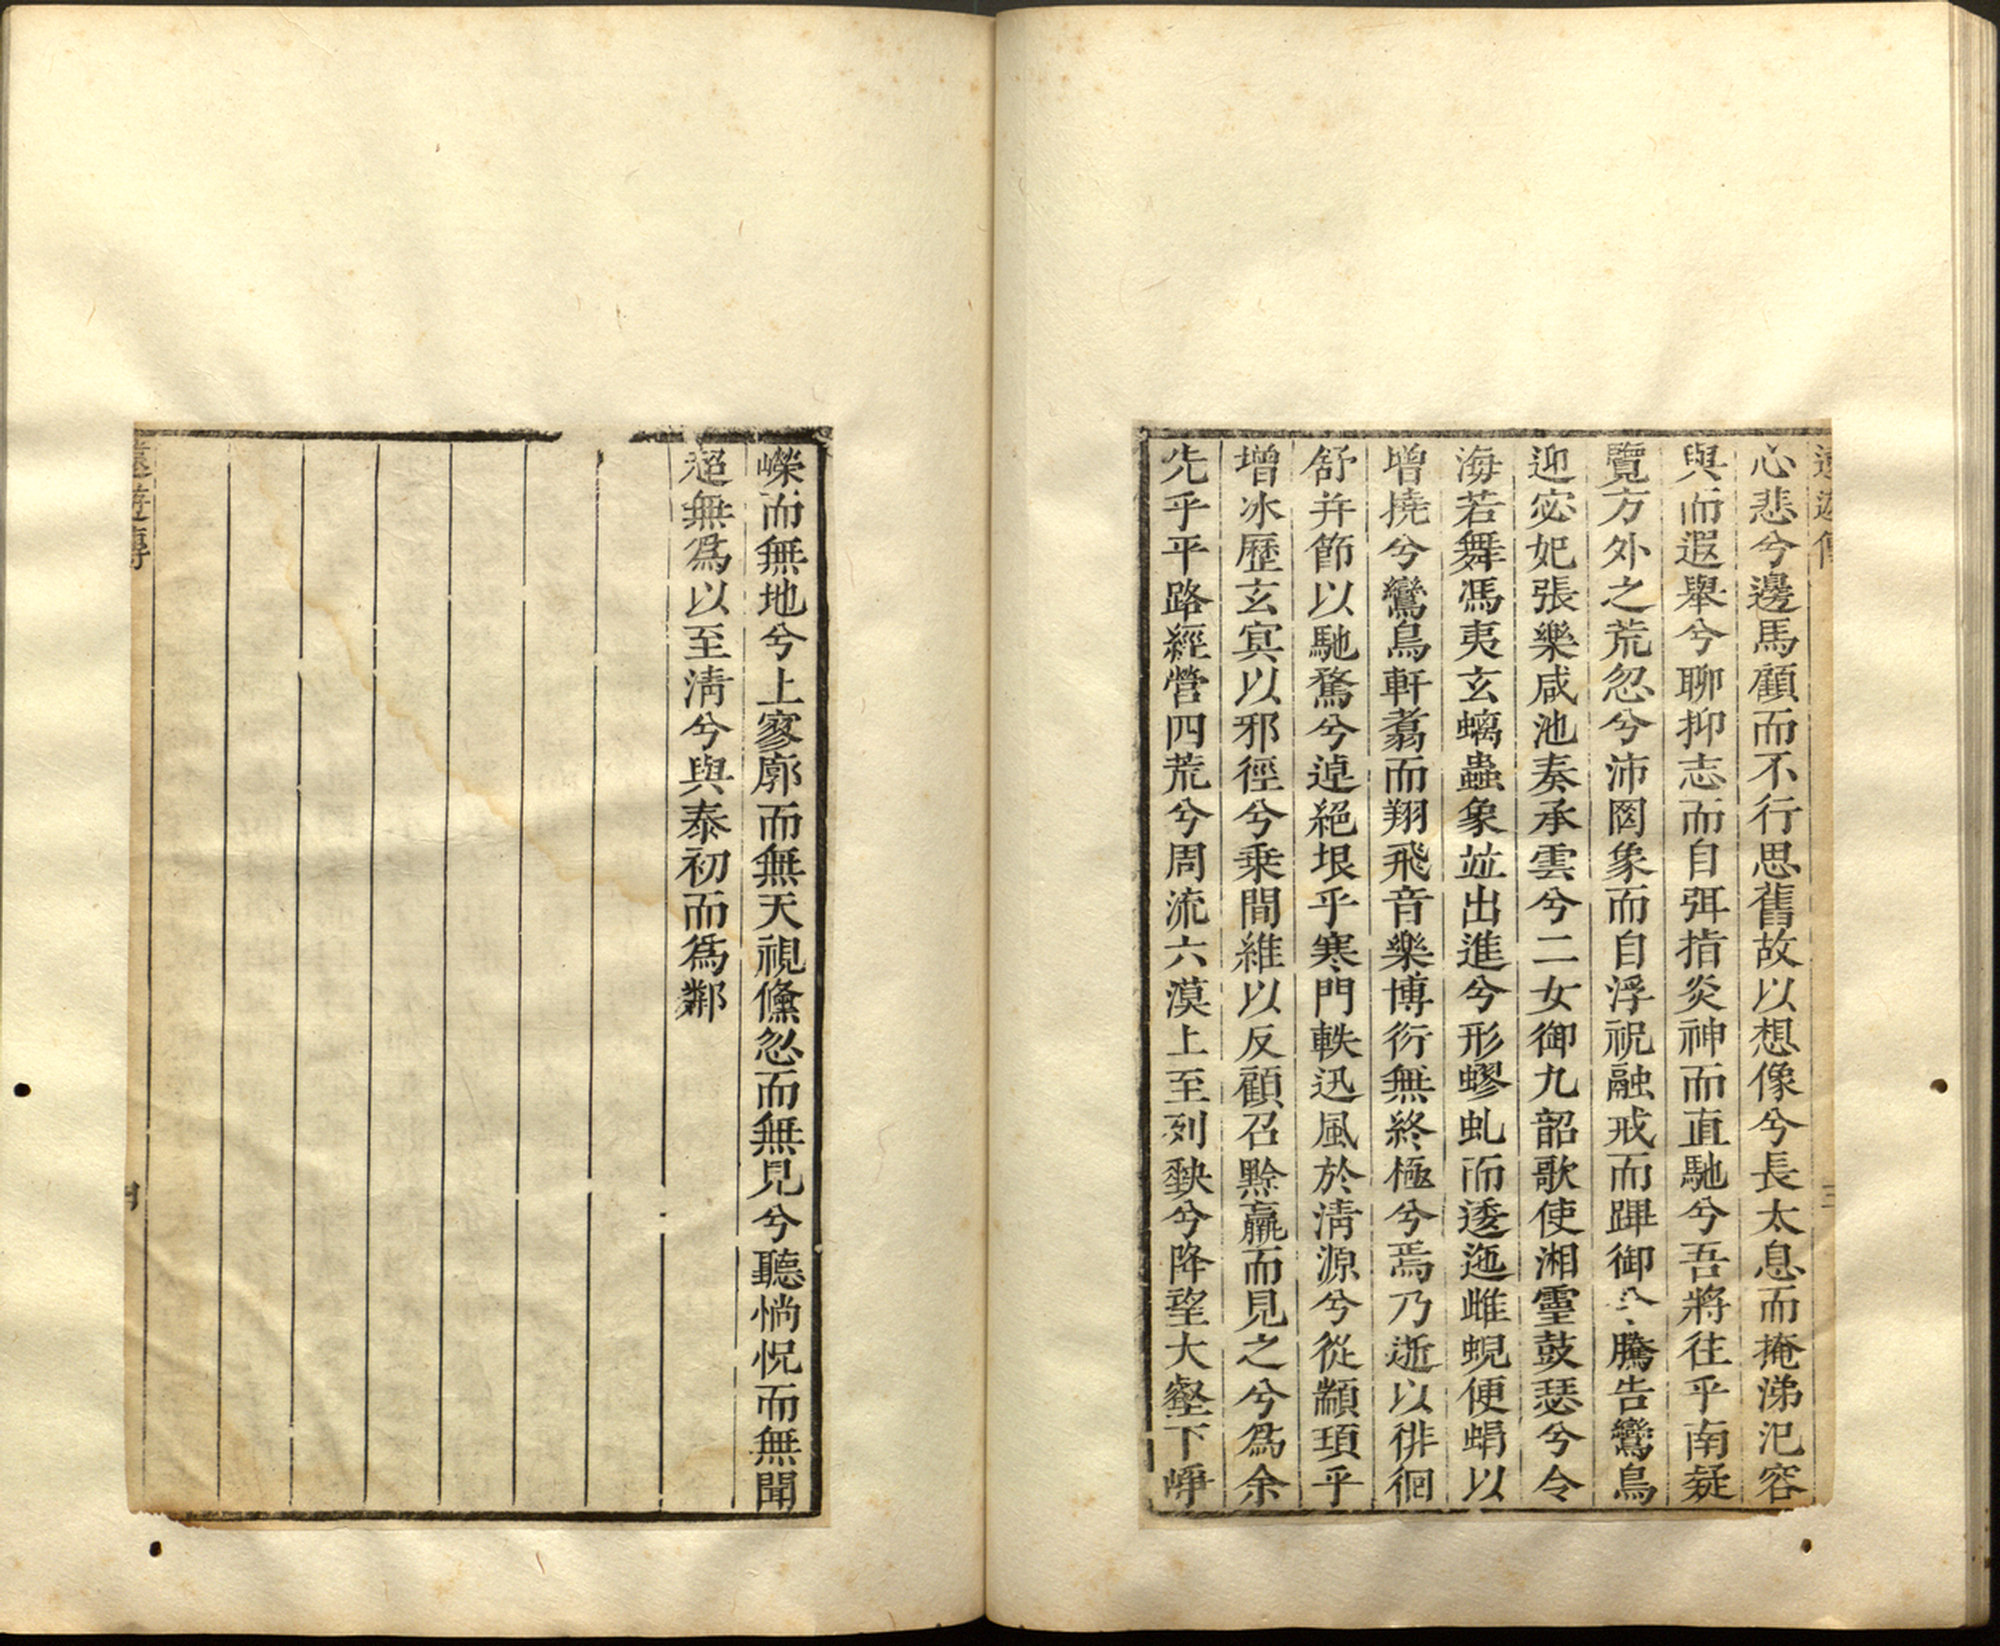 心悲兮邊馬顧而不行思舊故以想像兮長太息而掩涕氾容
與而遐舉兮聊抑志而自弭指炎神而直馳兮吾將往乎南疑
覽方外之荒忽兮沛罔象而自浮祝融戒而蹕御兮騰告鸞鳥
迎宓妃張樂咸池奏承雲兮二女御九韶歌使湘靈鼓瑟兮令
海若舞馮夷玄螭蟲象竝出進兮形蟉虬而逶迤雌蜺便蜎以
增撓兮鸞鳥軒翥而翔飛音樂博衍無終極兮焉乃逝以徘徊
舒并節以馳騖兮逴絕垠乎寒門軼迅風於清源兮從顓頊乎
增冰歷玄冥以邪徑兮乘間維以反顧召黔羸而見之兮為余
先乎平路經營四荒兮周流六漠上至列缺兮降望大壑下崢
嶸而無地兮上寥廓而無天視儵忽而無見兮聽惝怳而無聞
超無為以至清兮與泰初而為鄰
遠遊傳